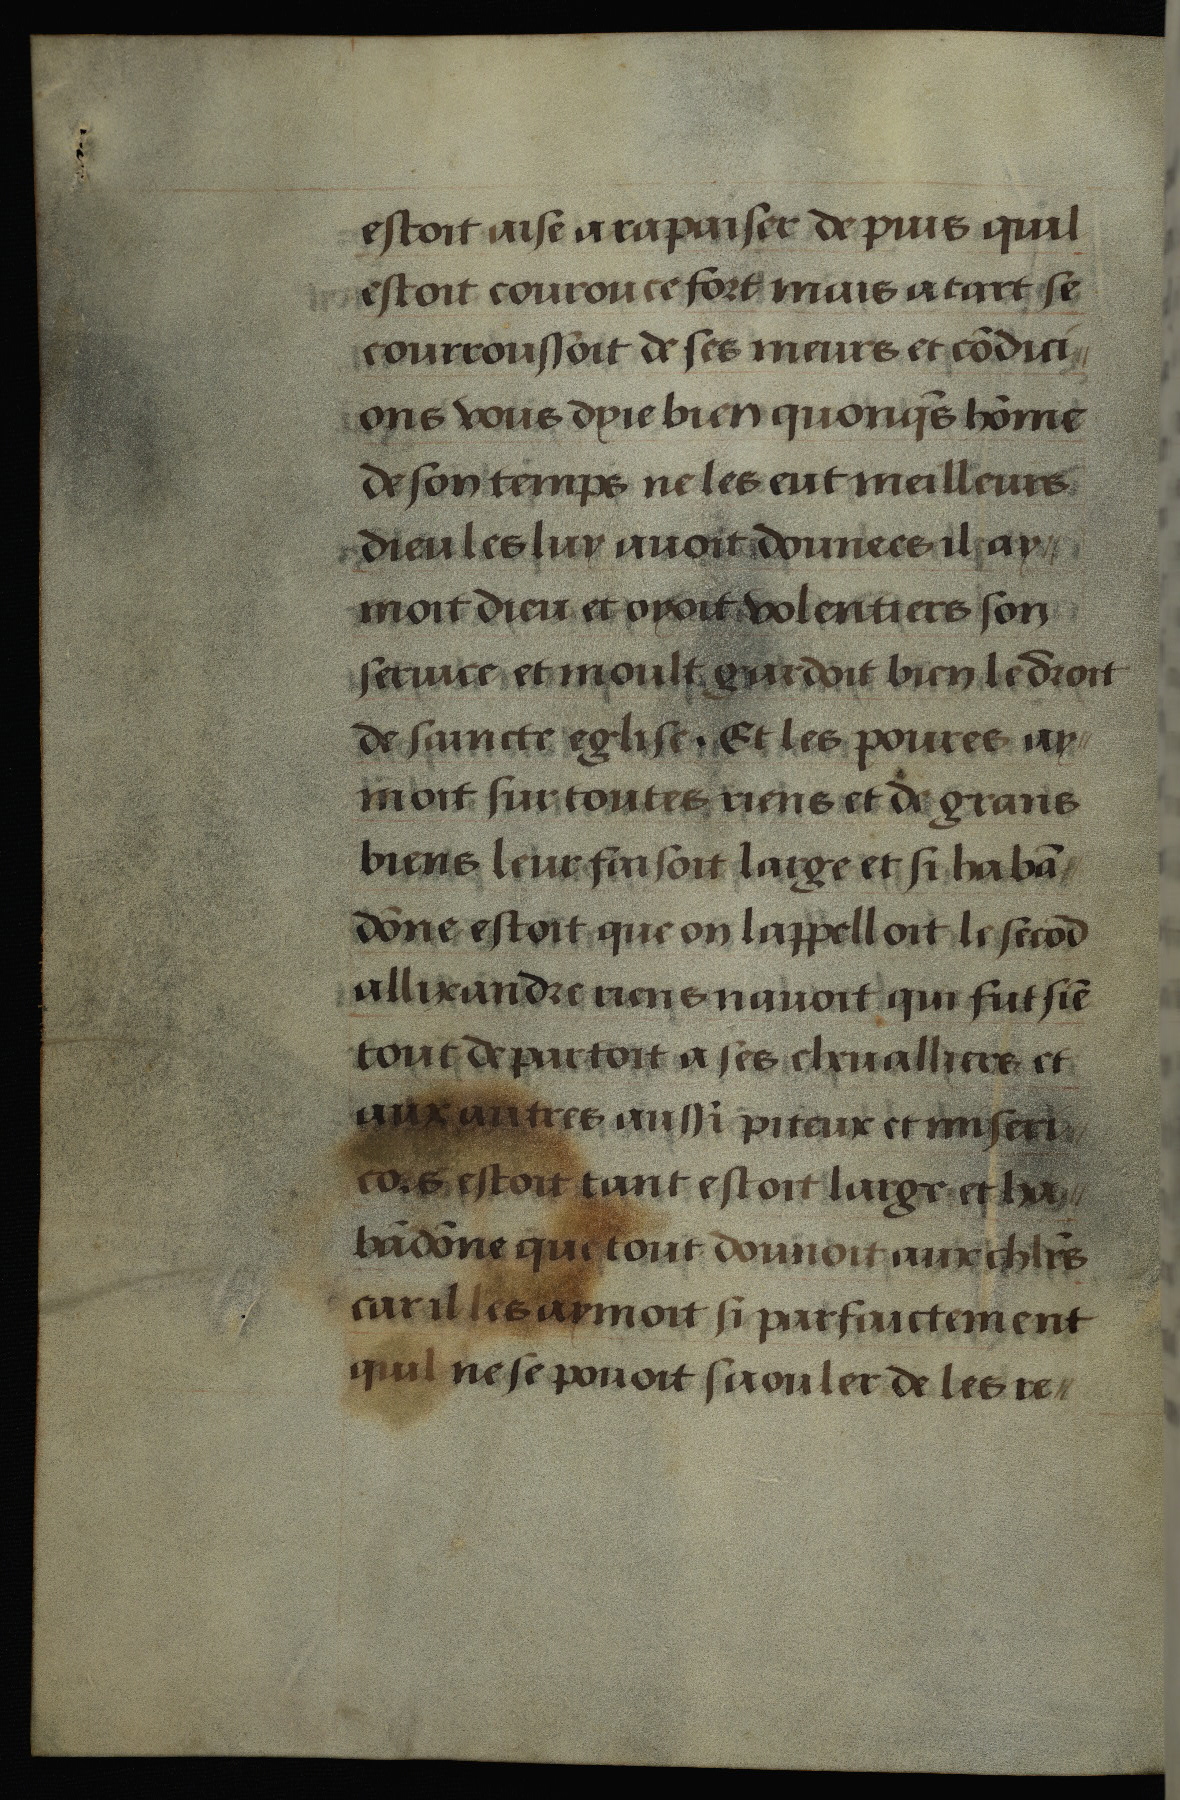 estoit aise a rapaiser de puis quil
estoit courouce fort mais a tart se
courroussoit de ses meurs et cōdici//
ons vous dyie bien quonqs̄ hōme
de son temps ne les eut meilleurs
dieu les luy auoit donnees il ay//
moit dieu et oyoit volentiers son
seruice et moult gardoit bien le droit
de saincte eglise. Et les poures ay//
moit sur toutes riens et de grans
biens leur faisoit large et si habā/
dōne estoit que on lappelloit le secōd
allixandre riens nauoit qui fut siē
tout departoit a ses cheualliers et
aux autres aussi piteux et miseri
cors estoit tant estoit large et ha//
bādōne que tout donnoit aux chlr̄s
car il les aymoit si parfaictement
quil ne se pouoit saouler de les re//